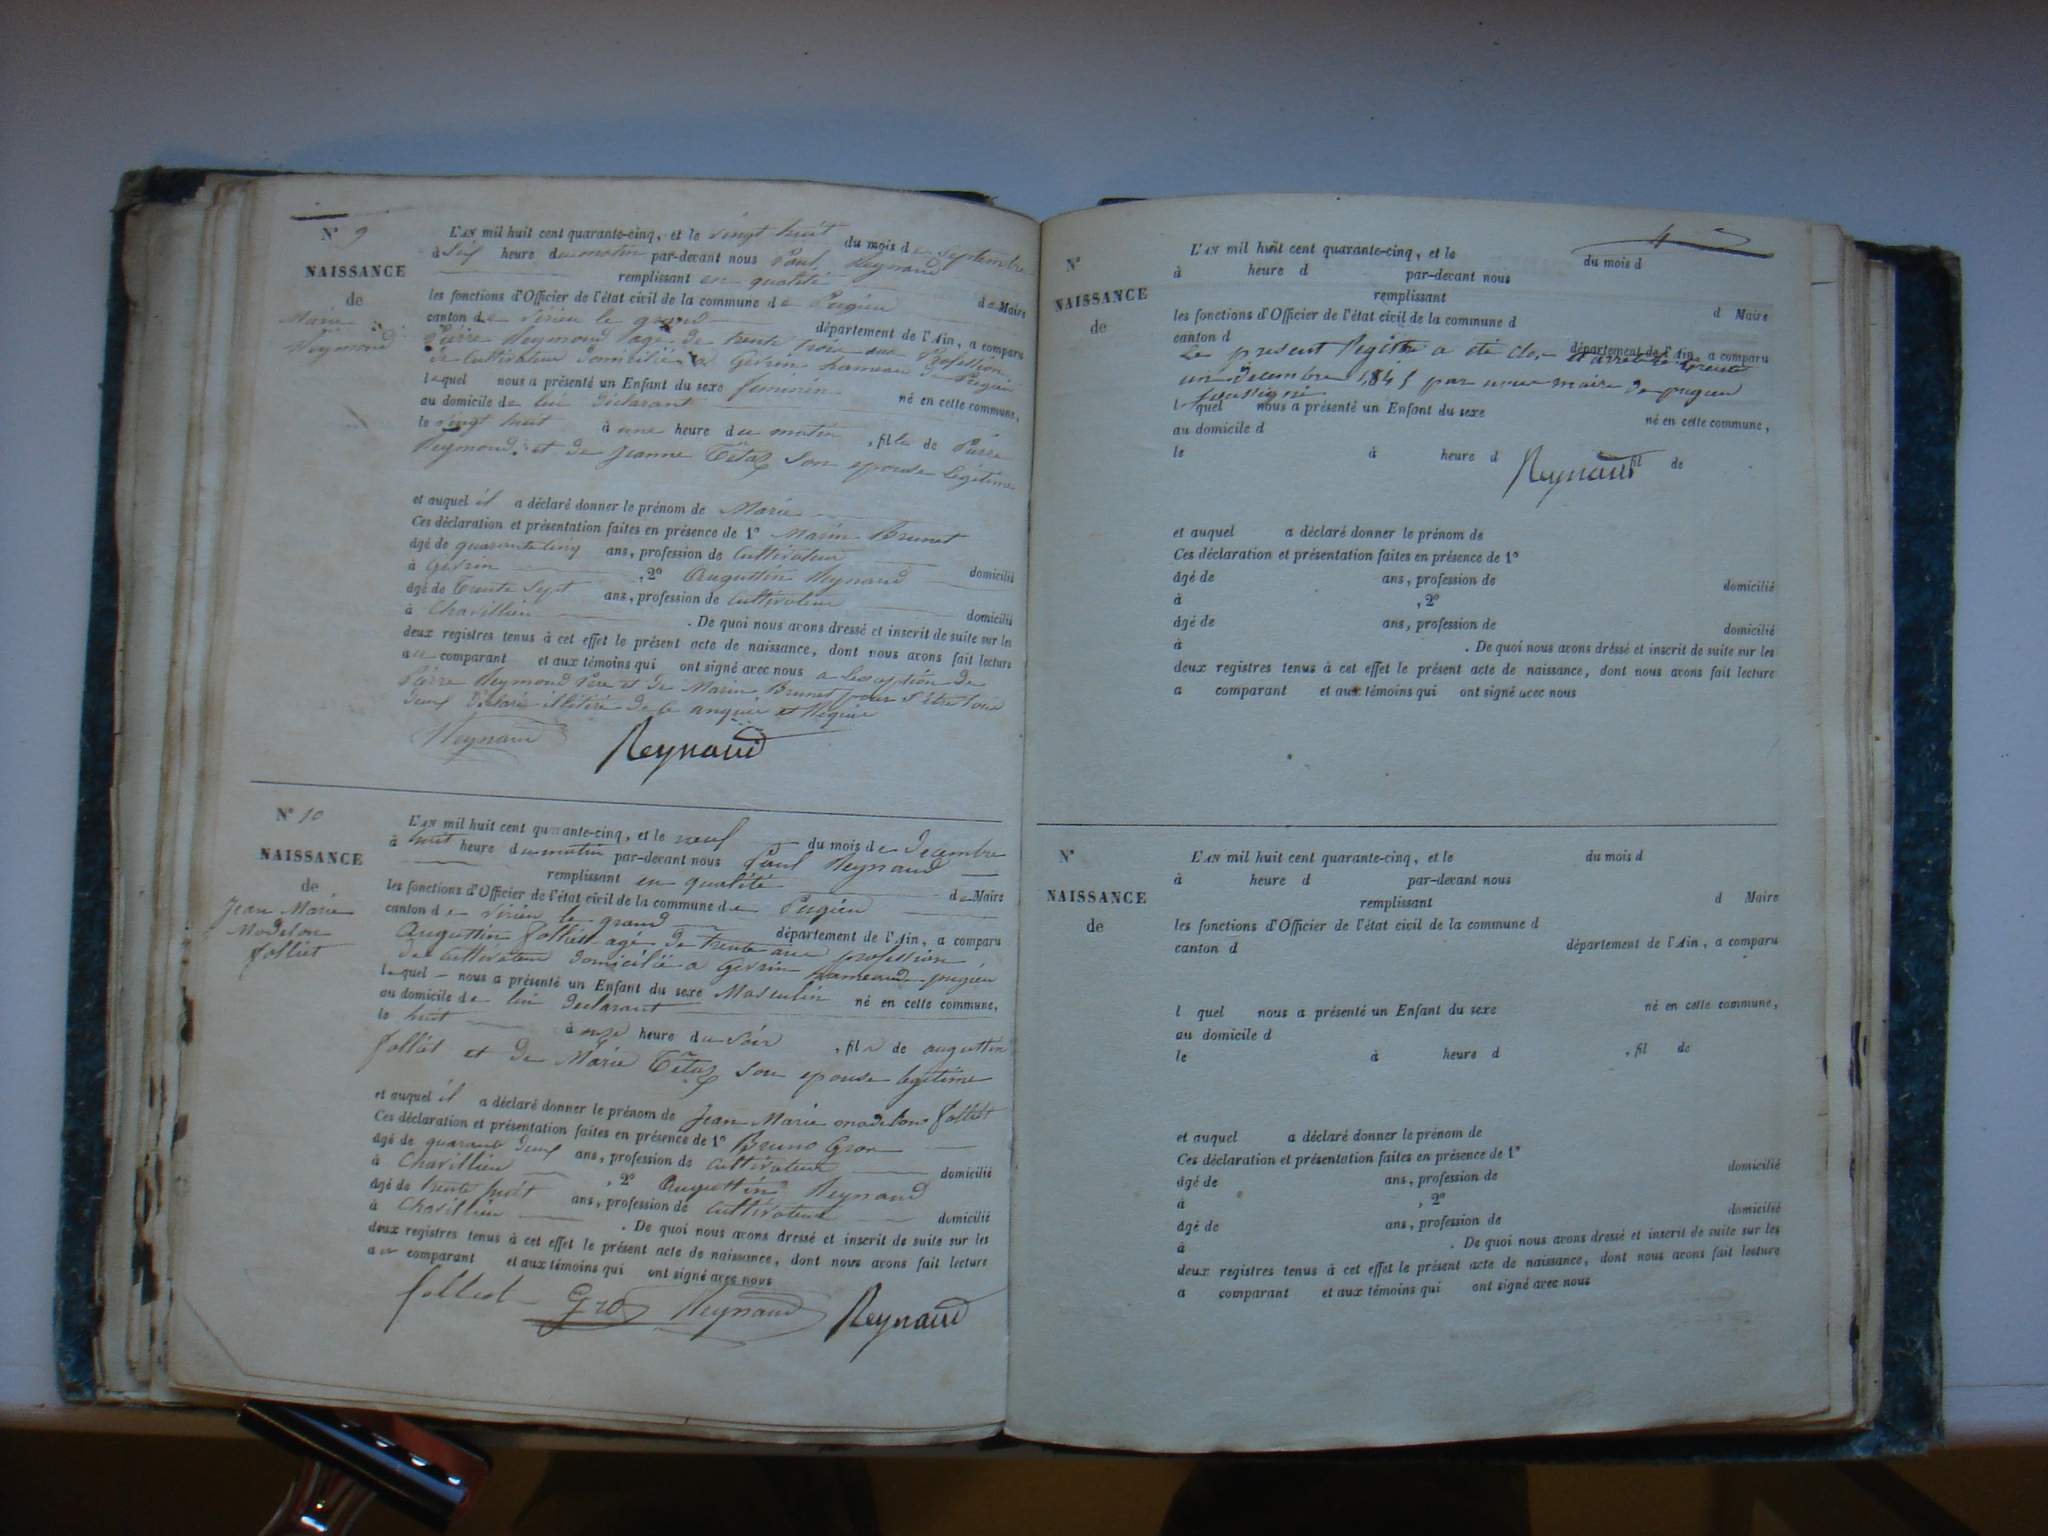 N° 9
NAISSANCE
de
Marie
Reymond
L'AN mil huit cent quarante-cinq, et le vingt huit du mois de Septembre
à Six heure du matin par-devant nous Paul Reynaud
remplissant en qualité de Maire
les fonctions d'Officier de l'état civil de la commune de Pugieu
canton de Virieu le grand département de l'Ain, a comparu
Pierre Reymond agé de trente trois ans Profession
de Cultivateur domicilié a Gévrin hameau de Pugieu
lequel nous a présenté un Enfant du sexe feminin né en cette commune,
au domicile de lui déclarant
le vingt huit à une heure du matin, fille de Pierre
Reymond et de Jeanne Tétaz son epouse légitime
et auquel il a déclaré donner le prénom de Marie
Ces déclaration et présentation faites en présence de 1° Marin Brunet
âgé de quarante cinq ans, profession de Cultivateur domicilié
à Gévrin, 2° Augustin Reynaud
âgé de Trente Sept ans, profession de Cultivateur domicilié
à Chavillieu. De quoi nous avons dressé et inscrit de suite sur les
deux registres tenus à cet effet le présent acte de naissance, dont nous avons fait lecture
au comparant et aux témoins qui ont signé avec nous a Lexception de
Pierre Reymond Père et de Marin Brunet pour s'être tous
deux déclaré illétiré de ce enquis et Requis
Reynaud Reynaud
N° 10
NAISSANCE
de
Jean Marie
Modelon
folliet
L'AN mil huit cent quarante-cinq, et le neuf du mois de Decembre
à huit heure du matin par-devant nous Paul Reynaud
remplissant en qualité de Maire
les fonctions d'Officier de l'état civil de la commune de Pugieu
canton de Virieu le grand département de l'Ain, a comparu
Augustin folliet agé de trente ans profession
de Cultivateur domicilié a Gévrin hameau de pugieu
lequel nous a présenté un Enfant du sexe Masculin né en cette commune,
au domicile de lui déclarant
le huit à onze heure du soir, fils de augustin
folliet et de Marie Tétaz son epouse legitime
et auquel il a déclaré donner le prénom de Jean Marie modelon folliet
Ces déclaration et présentation faites en présence de 1° Bruno Gros
âgé de quarante deux ans, profession de Cultivateur domicilié
à Chavillieu, 2° Augustin Reynaud
âgé de trente huit ans, profession de Cultivateur domicilié
à Chavillieu. De quoi nous avons dressé et inscrit de suite sur les
deux registres tenus à cet effet le présent acte de naissance, dont nous avons fait lecture
au comparant et aux témoins qui ont signé avec nous
folliet Gros Reynaud Reynaud
4
N°
NAISSANCE
de
L'AN mil huit cent quarante-cinq, et le du mois d
à heure d par-devant nous
remplissant d Maire
les fonctions d'Officier de l'état civil de la commune d
canton d département de l'Ain, a comparu
Le present Registre a été clos et arreté le trente
un decembre 1845 par nous maire de pugieu
soussigné
l quel nous a présenté un Enfant du sexe né en cette commune,
au domicile d
le à heure d , fil de
Reynaud
et auquel a déclaré donner le prénom de
Ces déclaration et présentation faites en présence de 1°
âgé de ans, profession de domicilié
à , 2°
âgé de ans, profession de domicilié
à . De quoi nous avons dressé et inscrit de suite sur les
deux registres tenus à cet effet le présent acte de naissance, dont nous avons fait lecture
a comparant et aux témoins qui ont signé avec nous
N°
NAISSANCE
de
L'AN mil huit cent quarante-cinq, et le du mois d
à heure d par-devant nous
remplissant d Maire
les fonctions d'Officier de l'état civil de la commune d
canton d département de l'Ain, a comparu
l quel nous a présenté un Enfant du sexe né en cette commune,
au domicile d
le à heure d , fil de
et auquel a déclaré donner le prénom de
Ces déclaration et présentation faites en présence de 1°
âgé de ans, profession de domicilié
à , 2°
âgé de ans, profession de domicilié
à . De quoi nous avons dressé et inscrit de suite sur les
deux registres tenus à cet effet le présent acte de naissance, dont nous avons fait lecture
a comparant et aux témoins qui ont signé avec nous